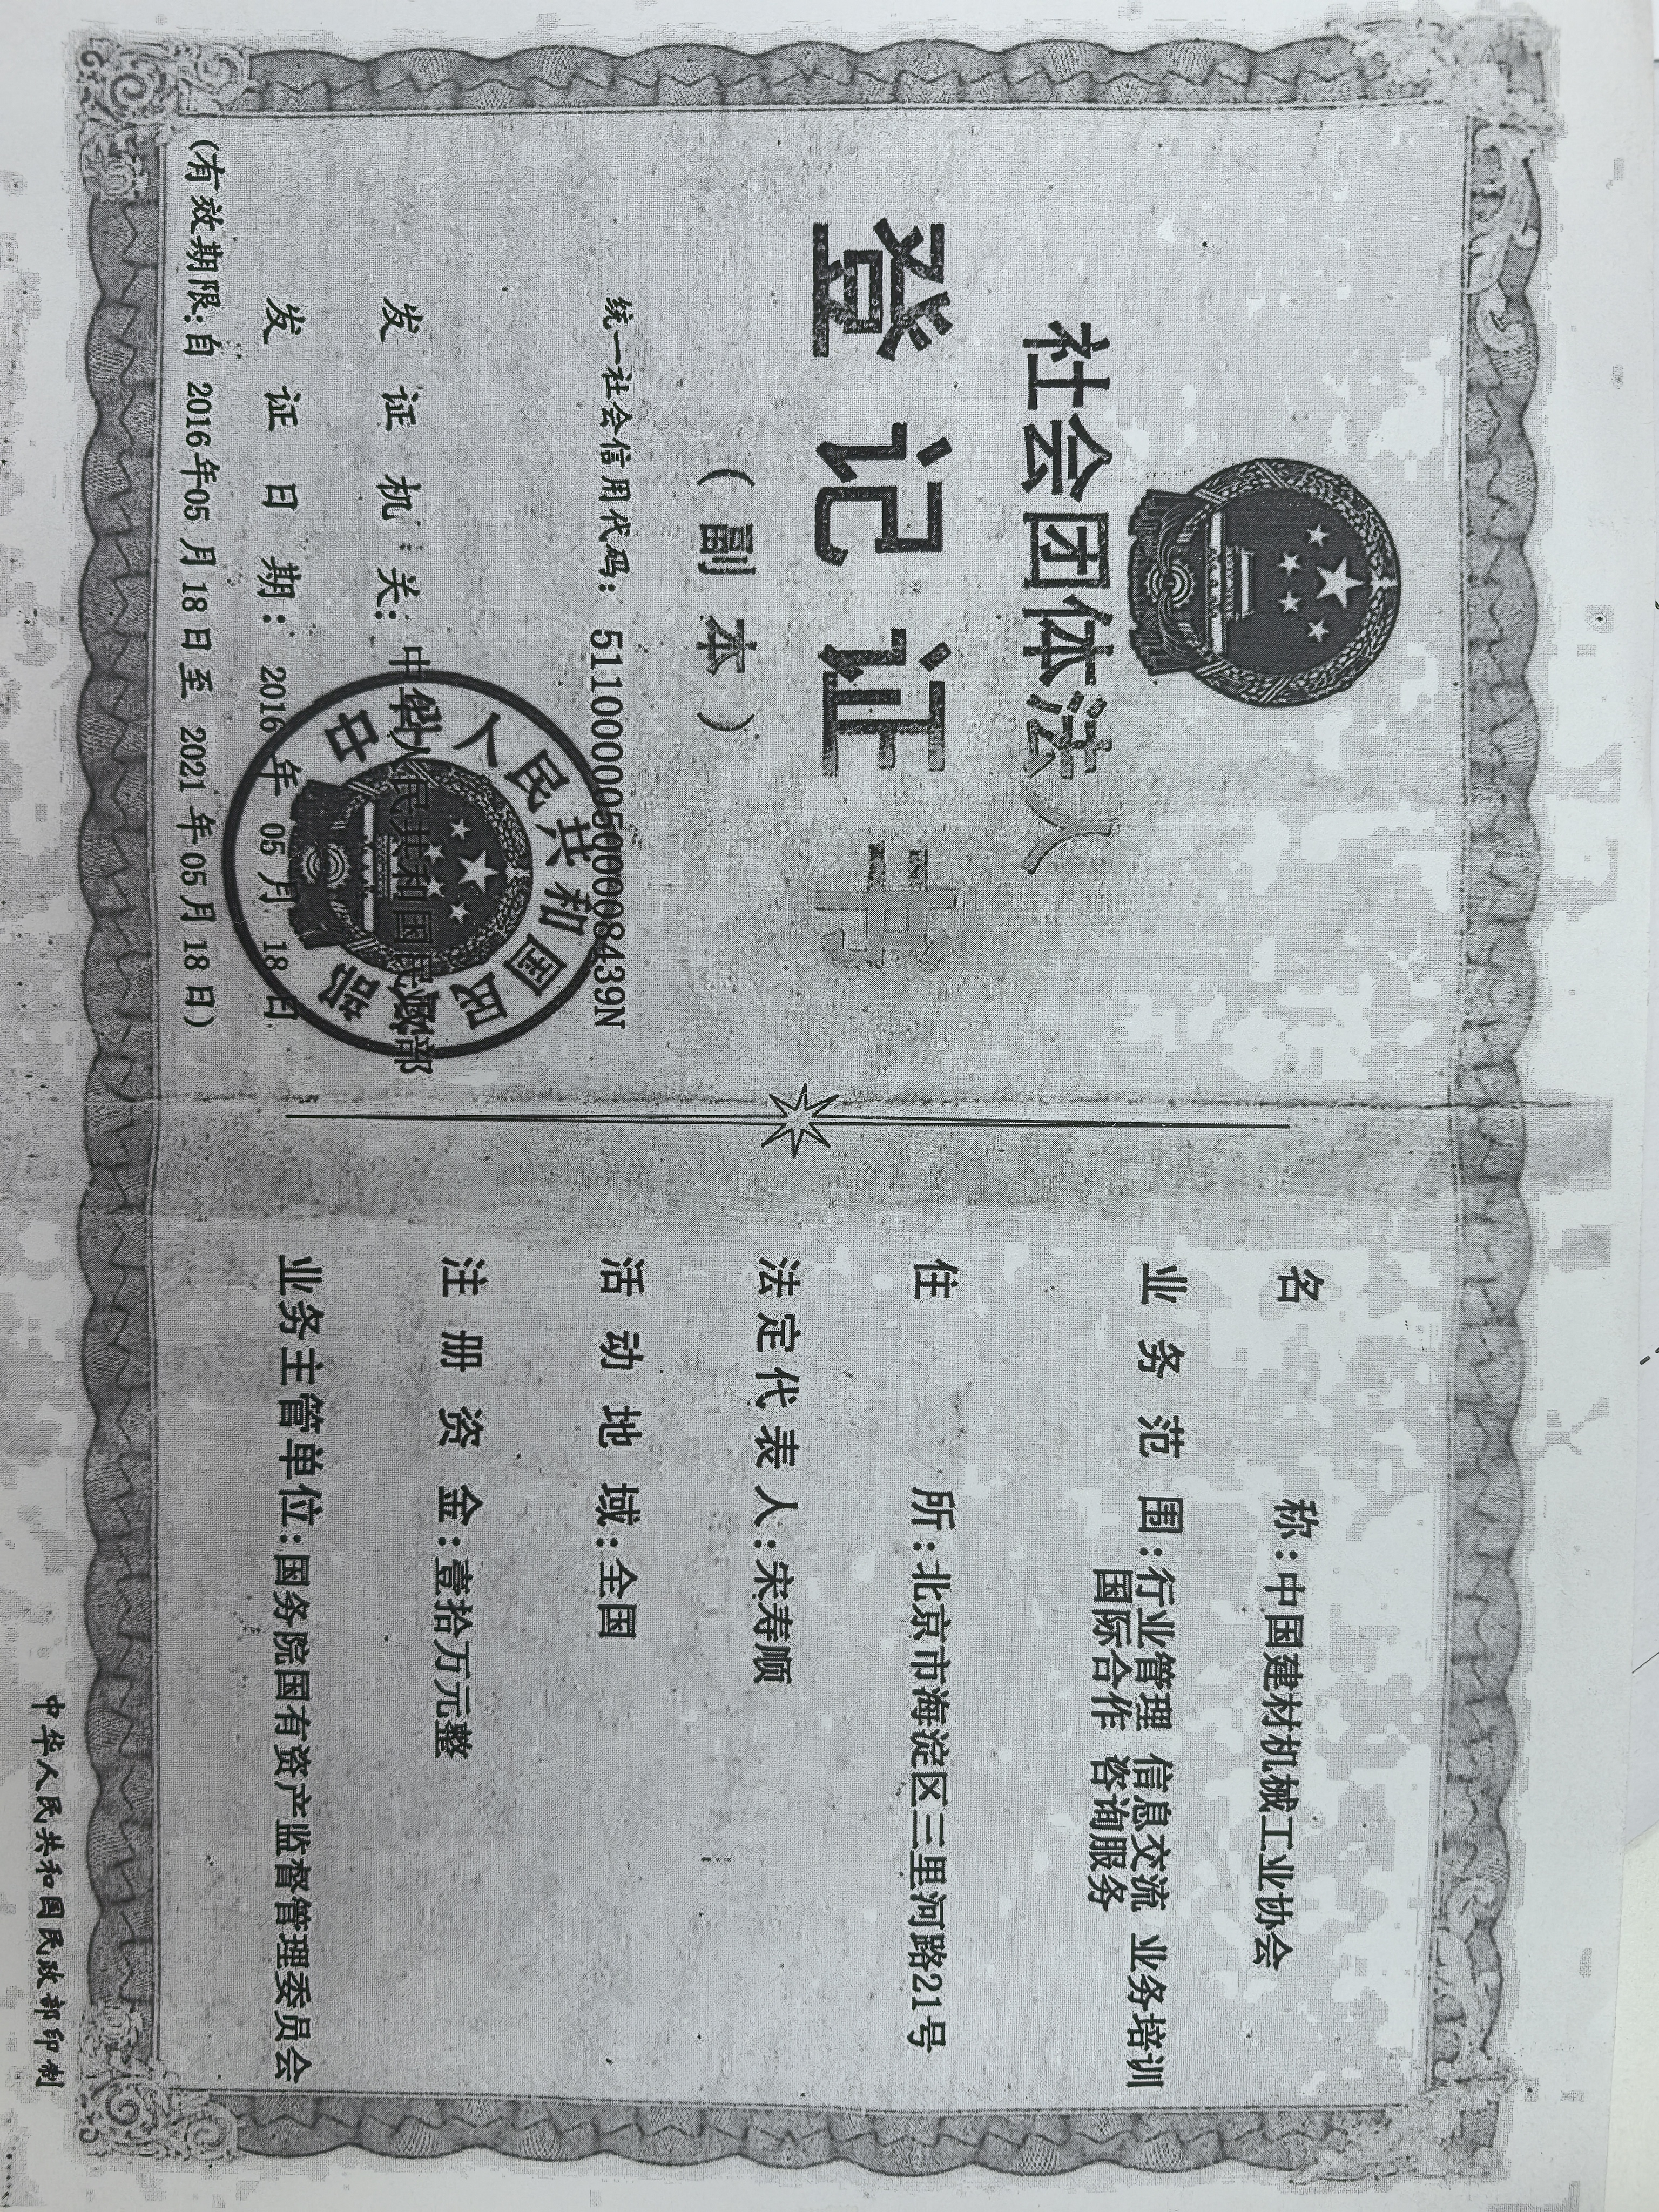 社会团体法人
登记证书
（副本）
统一社会信用代码：51100000500008439N
发证机关：中华人民共和国民政部
发证日期：2016年05月18日
（有效期限：自 2016年05月18日至 2021年05月18日）
中华人民共和国民政部
名称：中国建材机械工业协会
业务范围：行业管理 信息交流 业务培训
国际合作 咨询服务
住所：北京市海淀区三里河路21号
法定代表人：宋寿顺
活动地域：全国
注册资金：壹拾万元整
业务主管单位：国务院国有资产监督管理委员会
中华人民共和国民政部印制